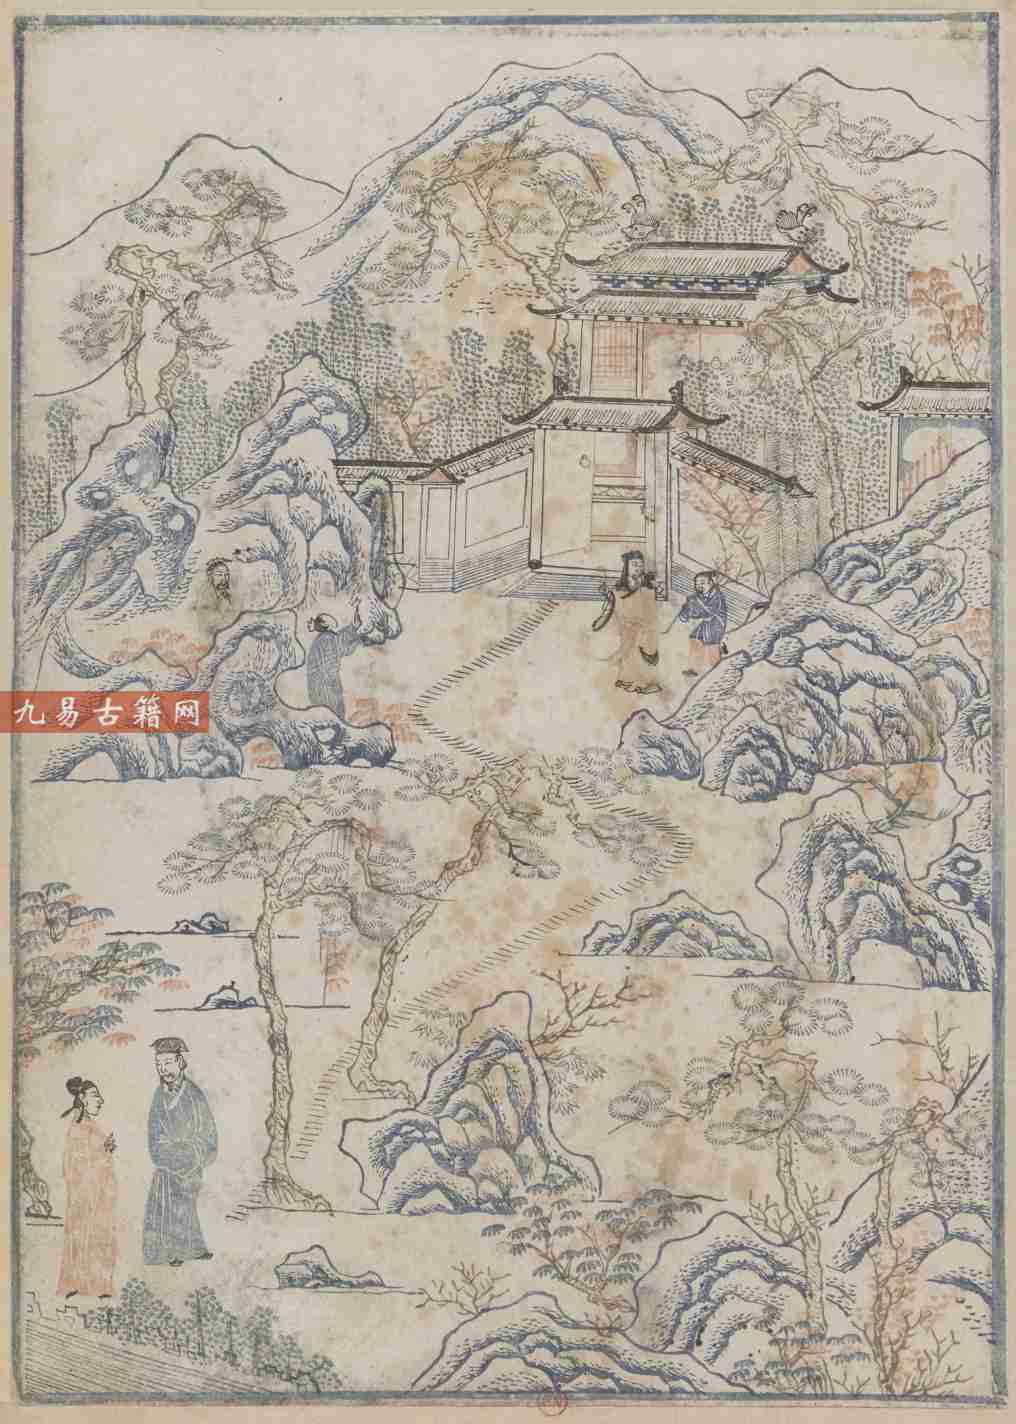 九易古籍网